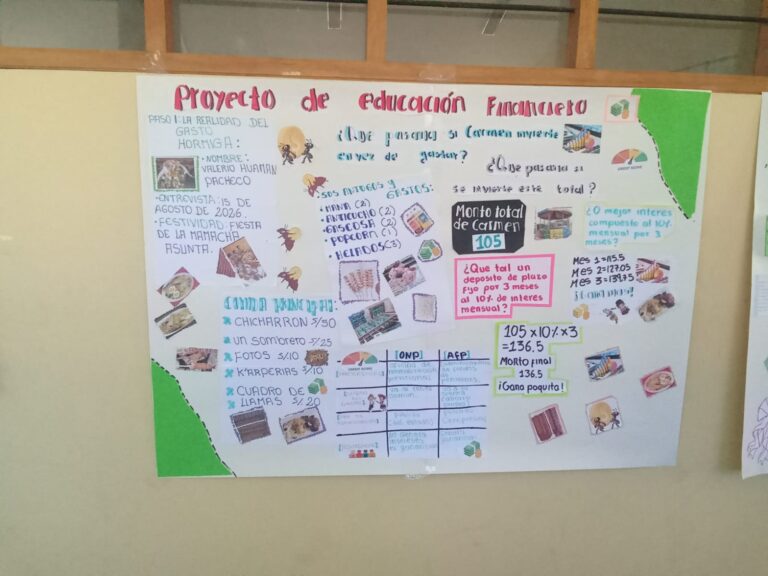 Proyecto de educación Financiera
PASO 1: LA REALIDAD DEL
GASTO
HORMIGA:
• NOMBRE:
VALERIO HUAMAN
PACHECO
• ENTREVISTA: 15 DE
AGOSTO DE 2026.
• FESTIVIDAD: FIESTA
DE LA MAMACHA
ASUNTA.
COMPRA PRINCIPAL:
CHICHARRON S/30
UN SOMBRERO S/25
FOTOS S/10
K'ARPERIAS S/10
CUADRO DE
LLAMAS S/20
SUS ANTOJOS Y
GASTOS:
• MANÁ (2)
• ANTICUCHO (2)
• GASEOSA (2)
• POPCORN (1)
• HELADOS (3)
¿Qué pasaría si Carmen invierte
en vez de gastar?
¿Que pasaria si
se invierte este total?
Monto total
de Carmen
105
¿Que tal un
deposito de plazo
fijo por 3 meses
al 10% de interes
mensual?
¿O mejor interés
compuesto al 10%
mensual por 3
meses?
MES 1 = 115.5
MES 2 = 127.05
MES 3 = 139.75
105 x 10% x 3
= 136.5
Monto final
136.5
¡Gana poquito!
[ONP]
[AFP]